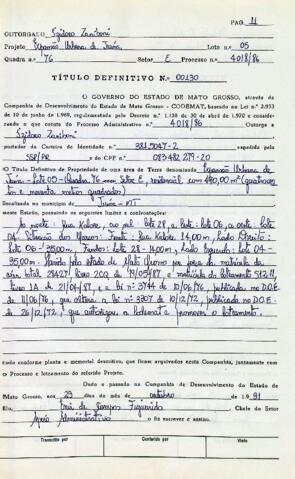 PAG 11
OUTORGADO Izidoro Zamboni
Projeto Expansão Urbana de Juína, Lote n.o 05
Quadra n.o 76 Setor E Processo n.o 4018/86
TÍTULO DEFINITIVO N.o 00130
O GOVERNO DO ESTADO DE MATO GROSSO, através da
Companhia de Desenvolvimento do Estado de Mato Grosso - CODEMAT, baseado na Lei n.o
10 de junho de 1969, regulamentada pelo Decreto n.o 1.138 de 30 de abril de 1970 e considerando
o que consta do Processo Administrativo n.o 4018/86 Outorga a
Izidoro Zamboni
portador da Carteira de Identidade n.o expedida pela
SSP/PR e do CPF n.o 083.482.279-20
O Título Definitivo de Propriedade de uma área de Terra denominada Expansão Urbana de
Juína - Lote 05 - Quadra 76 Setor E, residencial com 490,00 m² (quatrocentos
e noventa metros quadrados)
localizada no município de Juína - MT
neste Estado, possuindo os seguintes limites e confrontações:
Ao norte: Rua, ao sul: lote 28, a leste: lote 06, a oeste: lote
04. Situação dos Marcos: Frente: Rua 14,00 m, Lado Direito:
Lote 06 - 35,00 m. Fundos: Lote 28 - 14,00 m, Lado Esquerdo: Lote 04
35,00 m. pelo Estado de Mato Grosso por força da matrícula da
área total 28427 livro 2CQ de 19/05/87 e matrícula do loteamento
livro 1A de 21/04/87, e a lei nº 3744 de 10/06/76, publicada no D.O.E.
de 11/06/76, que altera a lei nº 3307 de 10/12/72, publicada no D.O.E. de
26/12/72, que autorizou a Codemat a promover o loteamento.
tudo conforme planta e memorial descritivo, que ficam arquivados nesta Companhia, juntamente com
o Processo e loteamento do referido Projeto.
Dado e passado na Companhia de Desenvolvimento do Estado de
Mato Grosso, aos 29 dias do mês de outubro de 1991
Eu, de Campos Figueiredo Chefe do Setor
Apoio Administrativo o fiz escrever e assino.
Transcrito por Conferido por Visto